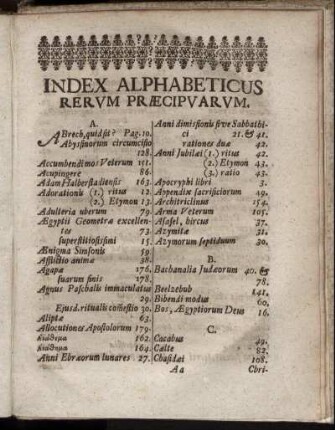 INDEX ALPHABETICUS
RERVM PRÆCIPVARVM.
A.
ABrech, quid sit? Pag. 10.
Abyssinorum circumcisio
128.
Accumbendi mos Veterum 151.
Acupingere 86.
Adam Halberstadiensis 163.
Adorationis (1.) ritus 12.
(2.) Etymon 13.
Adulteria uberum 79.
Ægyptii Geometræ excellentes 73.
superstitiosissimi 15.
Ænigma Simsonis 59.
Afflictio animæ 38.
Agapæ 176.
suarum finis 178.
Agnus Paschalis immaculatus
29.
Ejusd. ritualis comestio 30.
Aliptæ 63.
Allocutiones Apostolorum 179.
162.
164.
Anni Ebræorum lunares 27.
Anni dimissionis sive Sabbathici 21. & 41.
rationes duæ 42.
Anni Jubilæi (1.) ritus 42.
(2.) Etymon 43.
(3.) ratio 43.
Apocryphi libri 3.
Appendix sacrificiorum 49.
Architriclinus 154.
Arma Veterum 105.
Asasel, hircus 37.
Azymitæ 31.
Azymorum septiduum 30.
B.
Bachanalia Judæorum 40. &
78.
Beelzebub 141.
Bibendi modus 60.
Bos, Ægyptiorum Deus 16.
C.
Cacabus 49.
Calte 82.
Chasidæi 108.
Aa Chri-